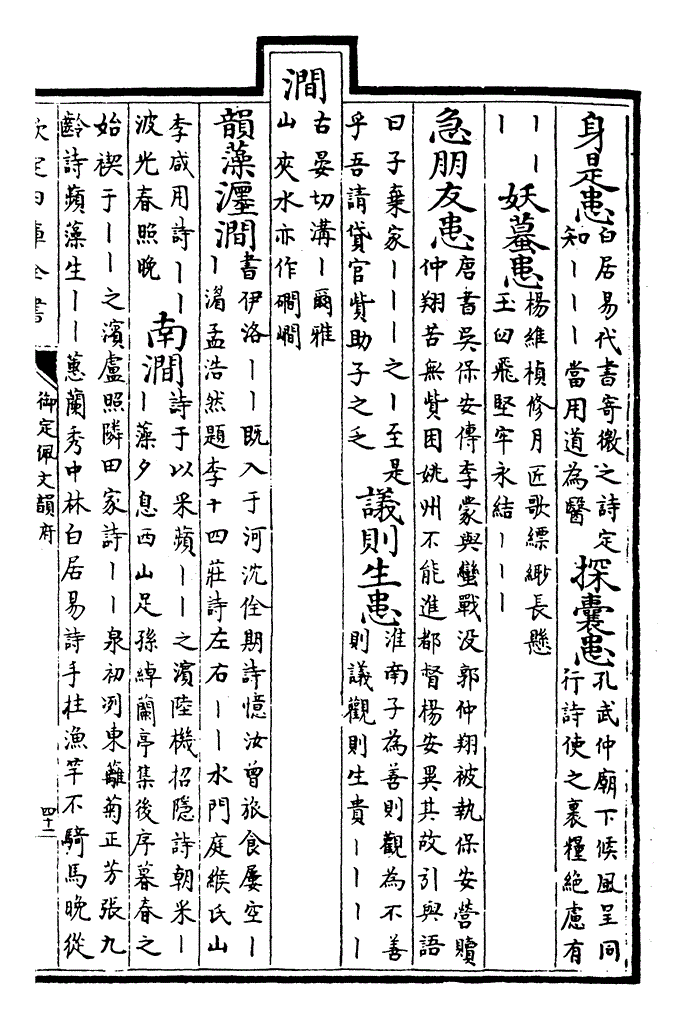 身是患白居易代書寄微之詩定
知丨丨丨當用道為醫
探囊患孔武仲廟下候風呈同
行詩使之裹糧絕慮有
丨丨
丨
妖蟇患楊維楨修月匠歌縹緲長懸
玉臼飛堅牢永結丨丨丨
急朋友患唐書吳保安傳李蒙與蠻戰没郭仲翔被執保安營贖
仲翔苦無貲困姚州不能進都督楊安異其故引與語
曰子棄家丨丨丨之丨至是
乎吾請貸官貲助子之乏
議則生患淮南子為善則觀為不善
則議觀則生貴丨丨丨丨
澗
古晏切溝丨爾雅
山夾水亦作磵
韻藻瀍澗書伊洛丨丨既入于河沈佺期詩憶汝曾旅食屡空丨
丨湄孟浩然題李十四莊詩左右丨丨水門庭緱氏山
李咸用詩丨丨
波光春照晚
南澗詩于以采蘋丨丨之濱陸機招隱詩朝采丨
丨藻夕息西山足孫綽蘭亭集後序暮春之
始禊于丨丨之濱盧照隣田家詩丨丨泉初冽東籬菊正芳張九
齡詩蘋藻生丨丨蕙蘭秀中林白居易詩手拄漁竿不騎馬晚從
欽定四庫全書
御定佩文韻府
四十二